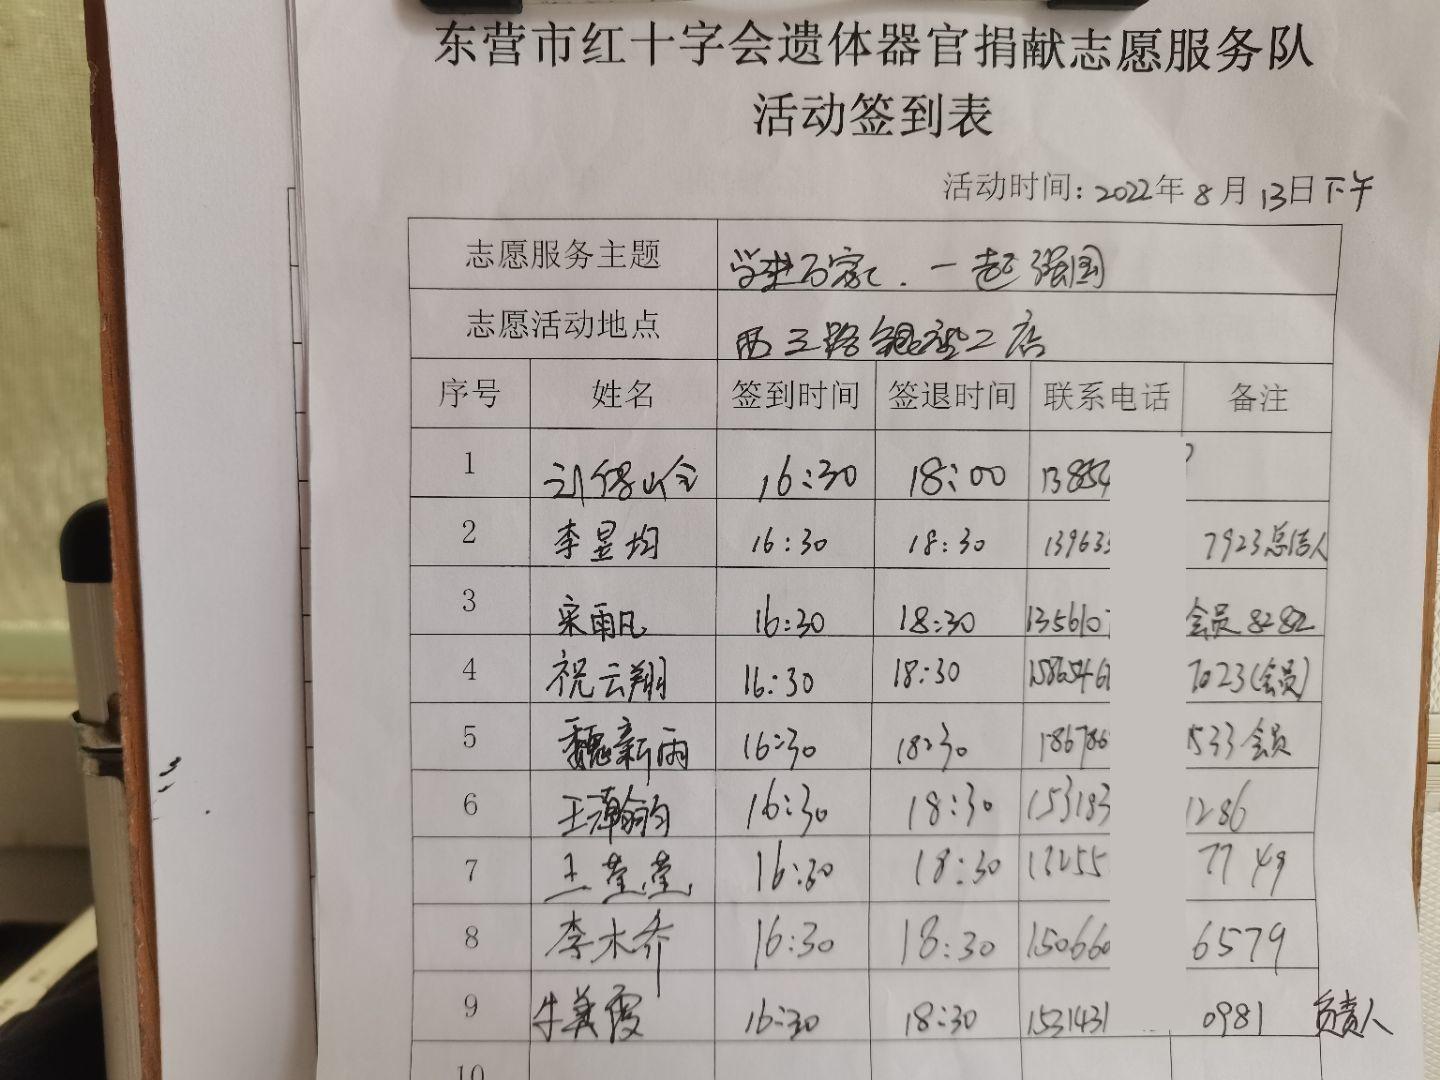 东营市红十字会遗体器官捐献志愿服务队
活动签到表
活动时间: 2022年 8月 13日下午
志愿服务主题 一起强国
志愿活动地点 西三路银座工店
序号 姓名 签到时间 签退时间 联系电话 备注
1 16:30 18:00 13854
2 李昱均 16:30 18:30 13963 7923总结人
3 宋雨凡 16:30 18:30 1356107 会员8282
4 祝云翔 16:30 18:30 1586546 7023(会员)
5 魏新雨 16:30 18:30 186786 1533会员
6 王瀚钧 16:30 18:30 153183 1286
7 王莹莹 16:30 18:30 13255 7749
8 李木乔 16:30 18:30 150660 6579
9 牛美霞 16:30 18:30 1531431 0981 负责人
10